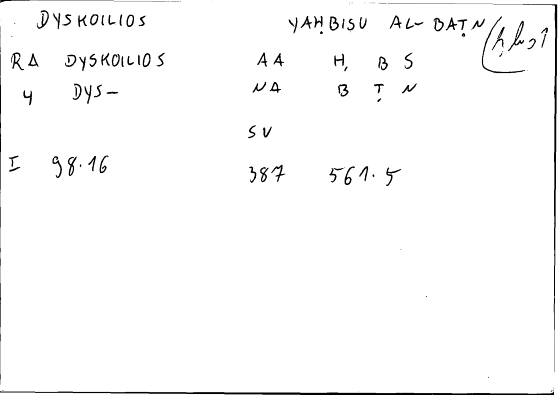 DYSKOILIOS YAḤBISU AL-BAṬN
RA DYSKOILIOS AA Ḥ B S
4 DYS- NA B Ṭ N
SU
I 98.16 387 561.5